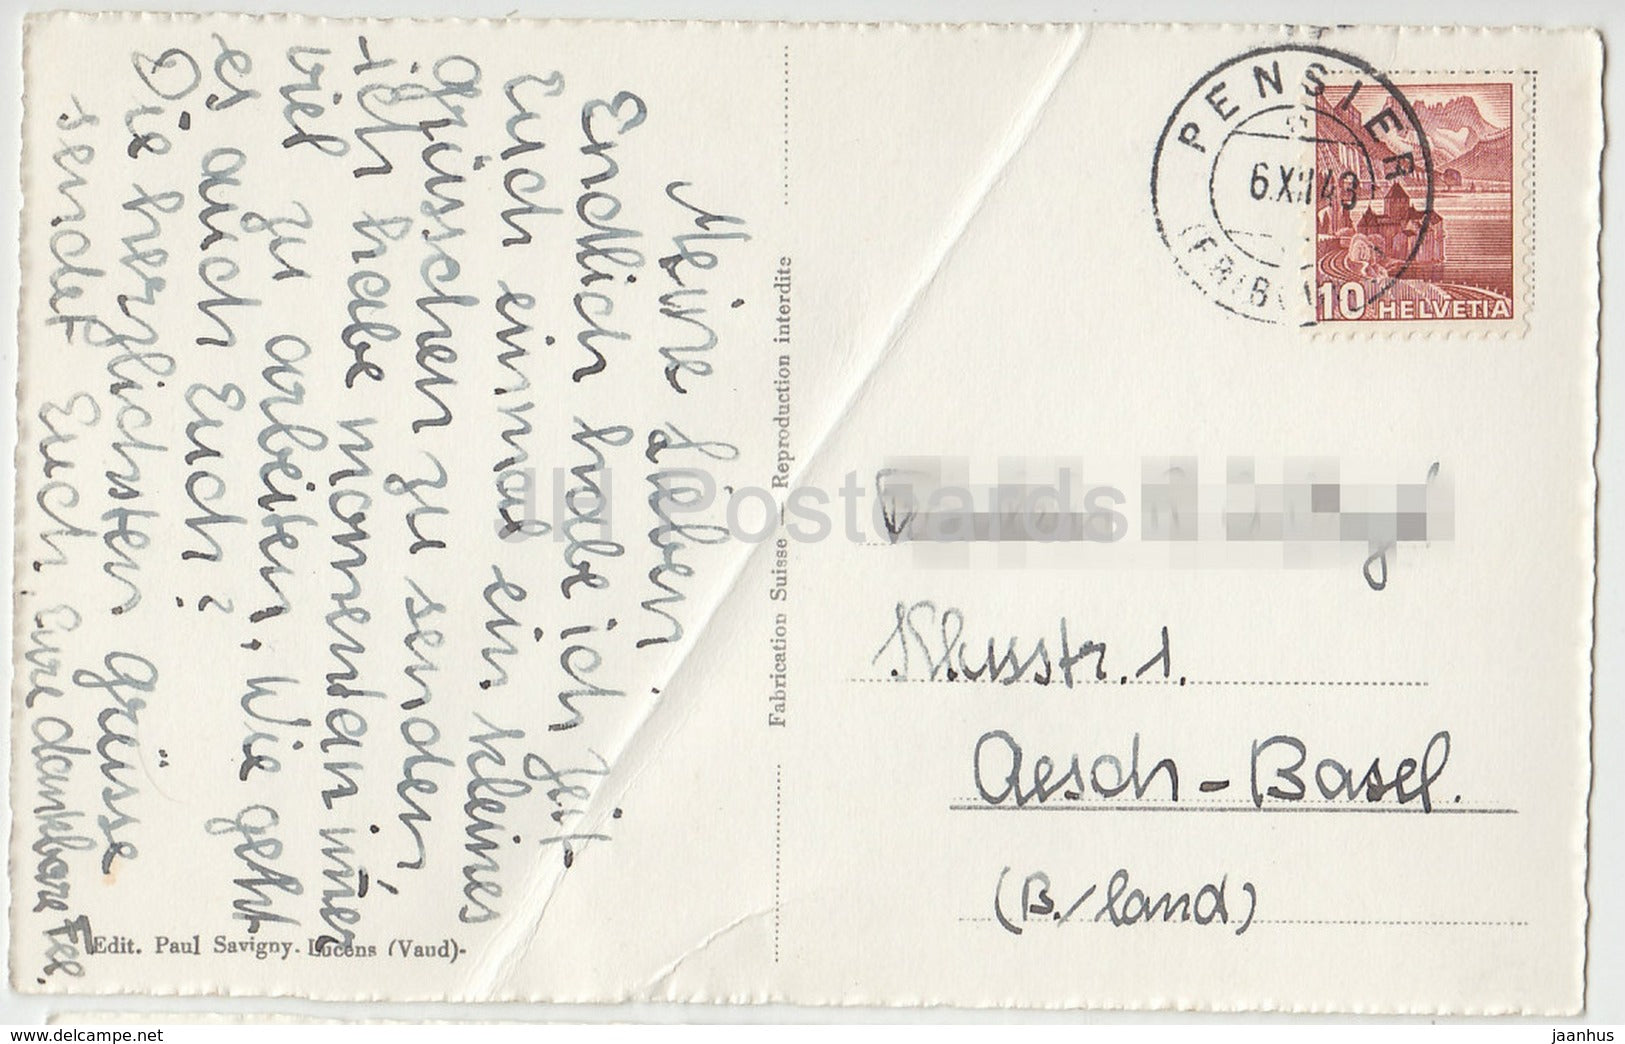 Meine Lieben
Endlich habe ich Zeit
Euch einmal ein kleines
Grüsschen zu senden,
ich habe momentan imer
viel zu arbeiten. Wie geht
es auch Euch?
Die herzlichsten Grüsse
sendet Euch, Eure dankbare
Fabrication Suisse – Reproduction interdite
Edit. Paul Savigny. Lucens (Vaud)-
PENSIER
6.XII.43
10 HELVETIA
Klusstr. 1.
Aesch-Basel.
(B./land)
JH Postcards
delcampe.net
jaanhus